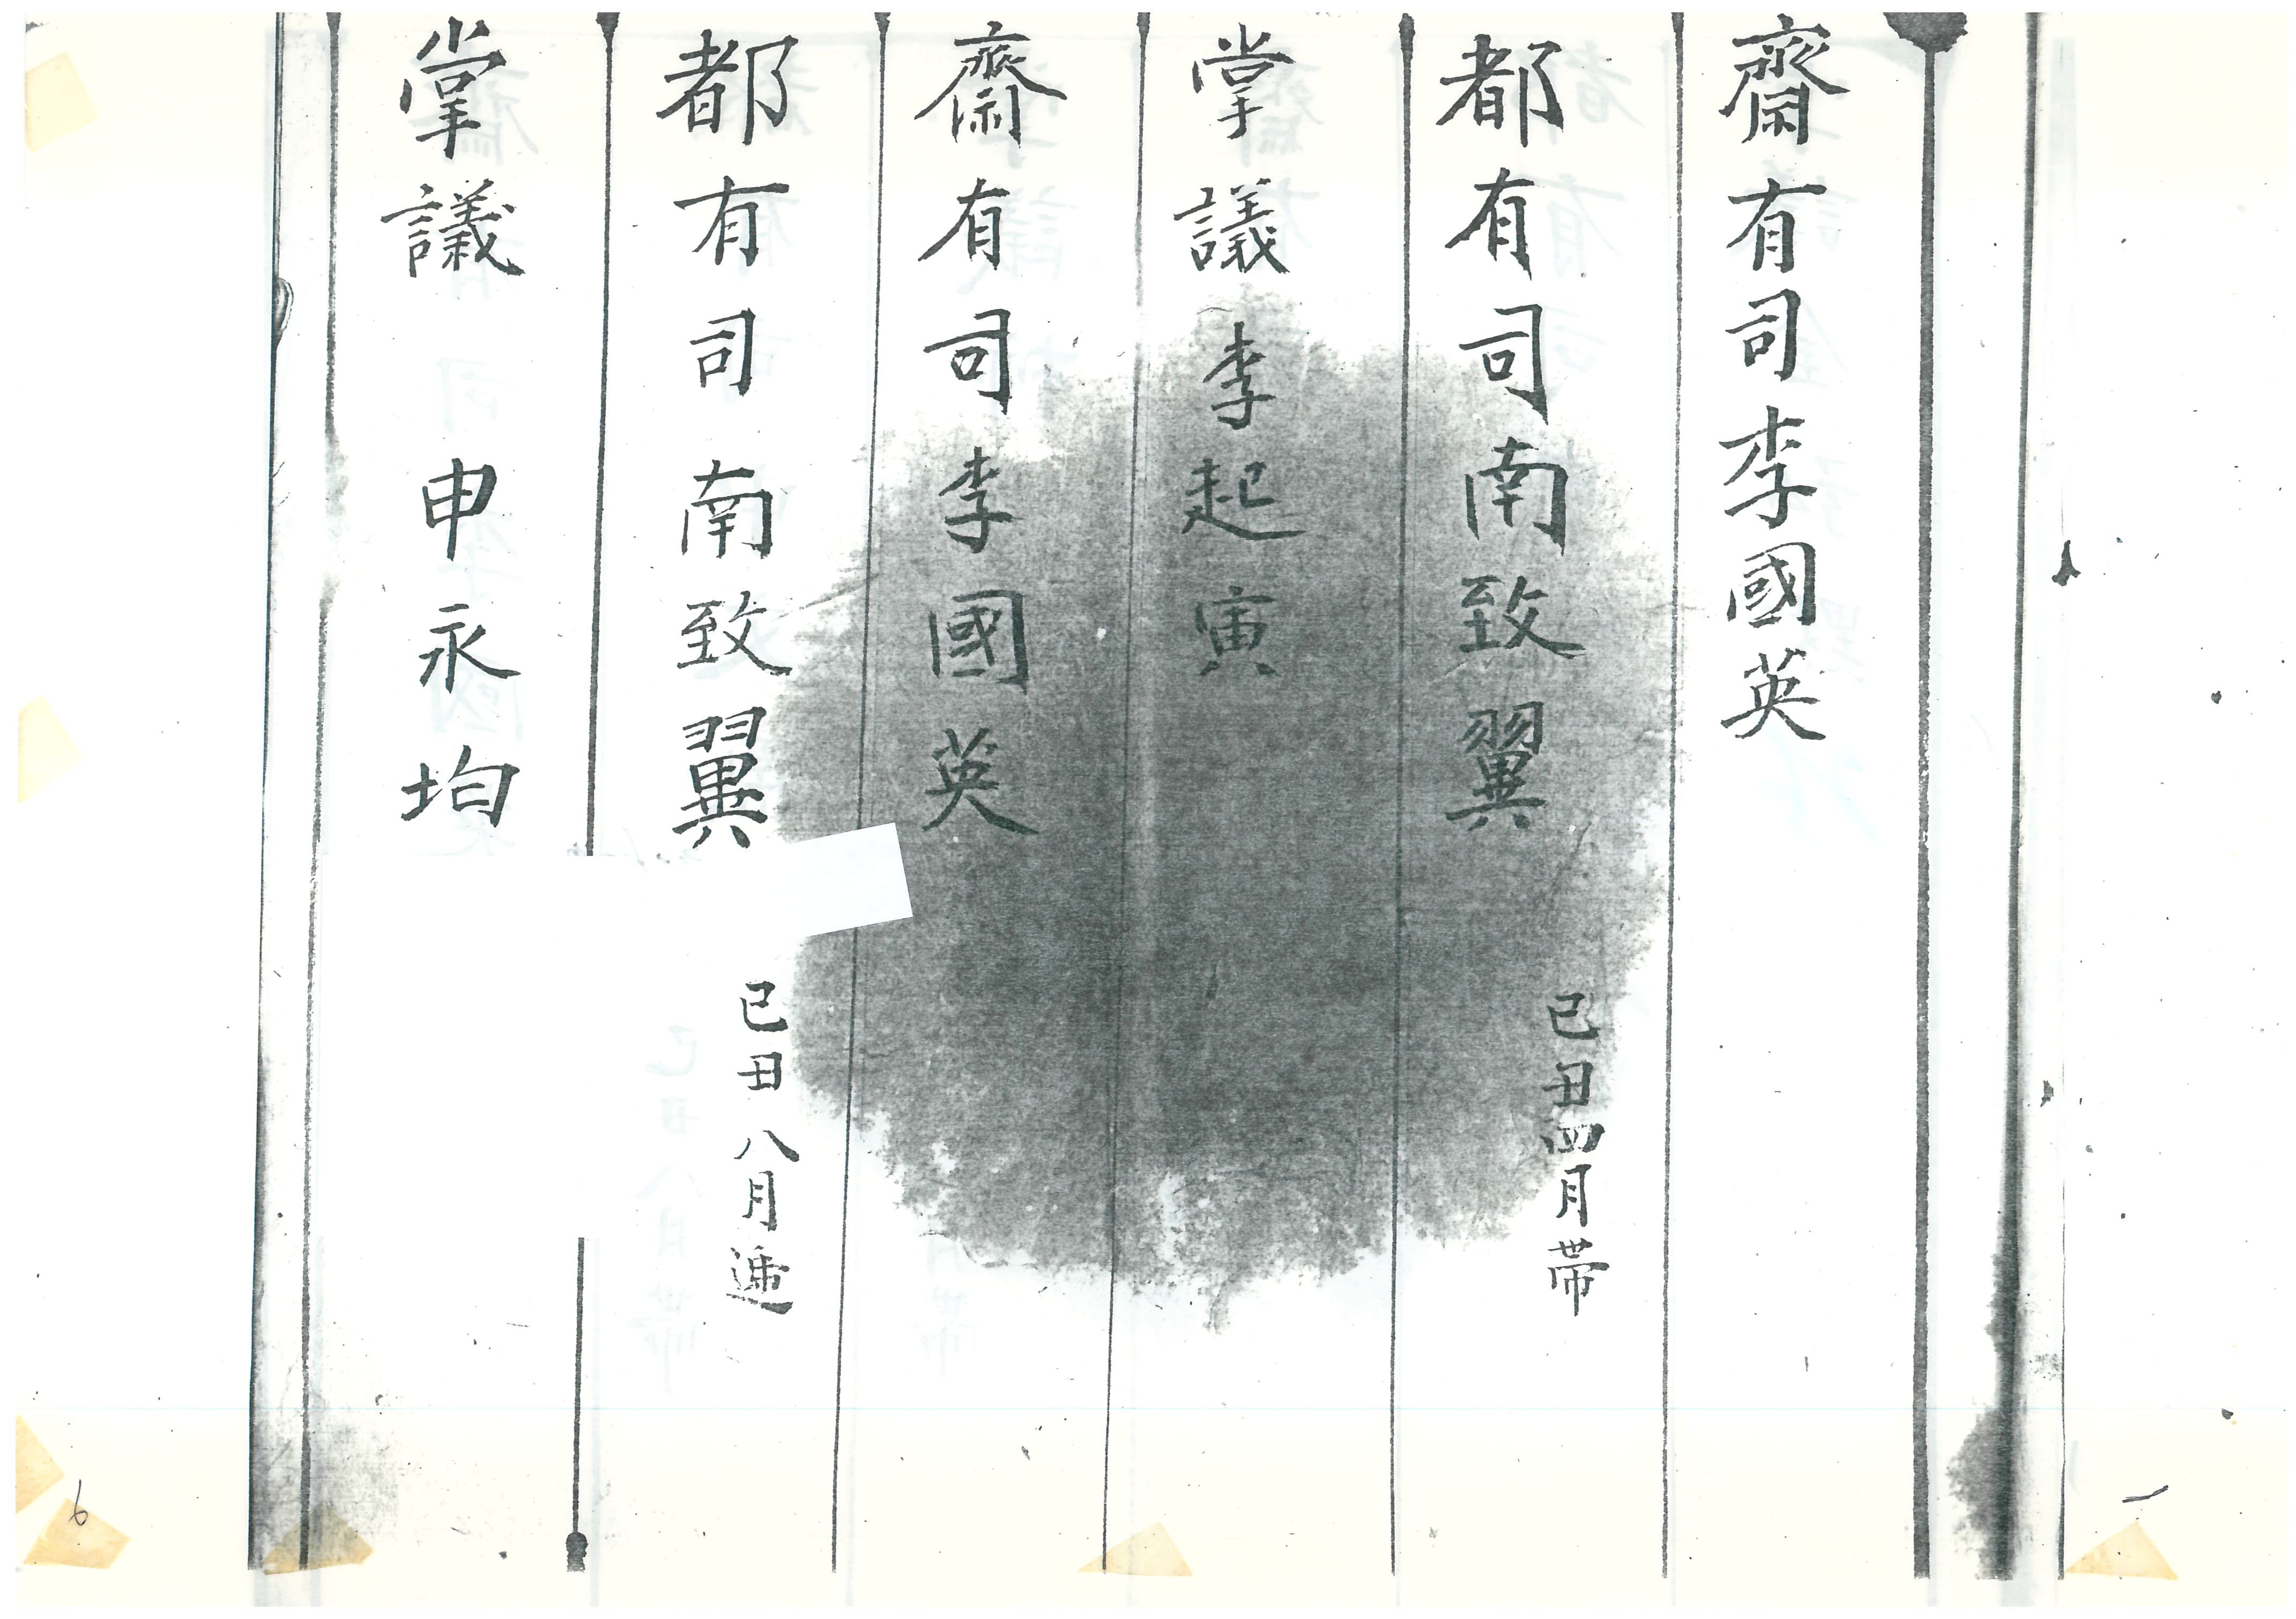 齋有司李國英
都有司南致翼 己丑四月帶
掌議李起寅
齋有司李國英
都有司南致翼 己丑八月遞
掌議 申永均
6